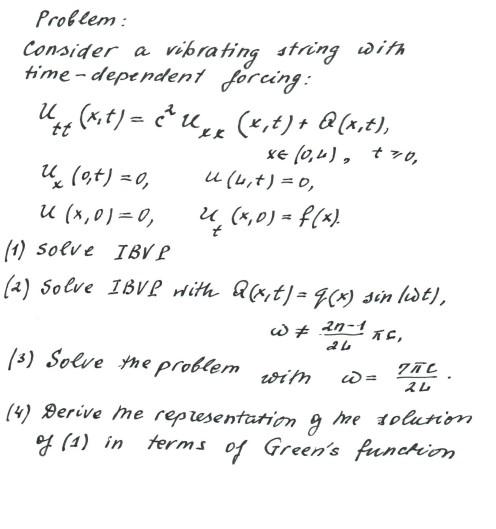 Problem:
Consider a vibrating string with
time-dependent forcing:
U_tt (x,t) = c² U_xx (x,t) + Q(x,t),
x∈ (0,L), t>0,
U_x (0,t) = 0, U(L,t) = 0,
U(x,0) = 0, U_t (x,0) = f(x).
(1) Solve IBVP
(2) Solve IBVP with Q(x,t) = q(x) sin(ωt),
ω ≠ (2n-1)/(2L) πc,
(3) Solve the problem with ω = 7πc/(2L).
(4) Derive the representation of the solution
of (1) in terms of Green's function